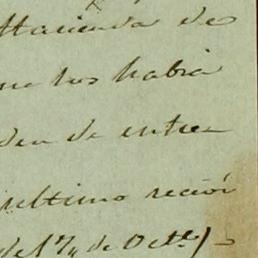 Hacienda de
los habia
den de entre
ultimo recivi
del 7/4 de Octe.)